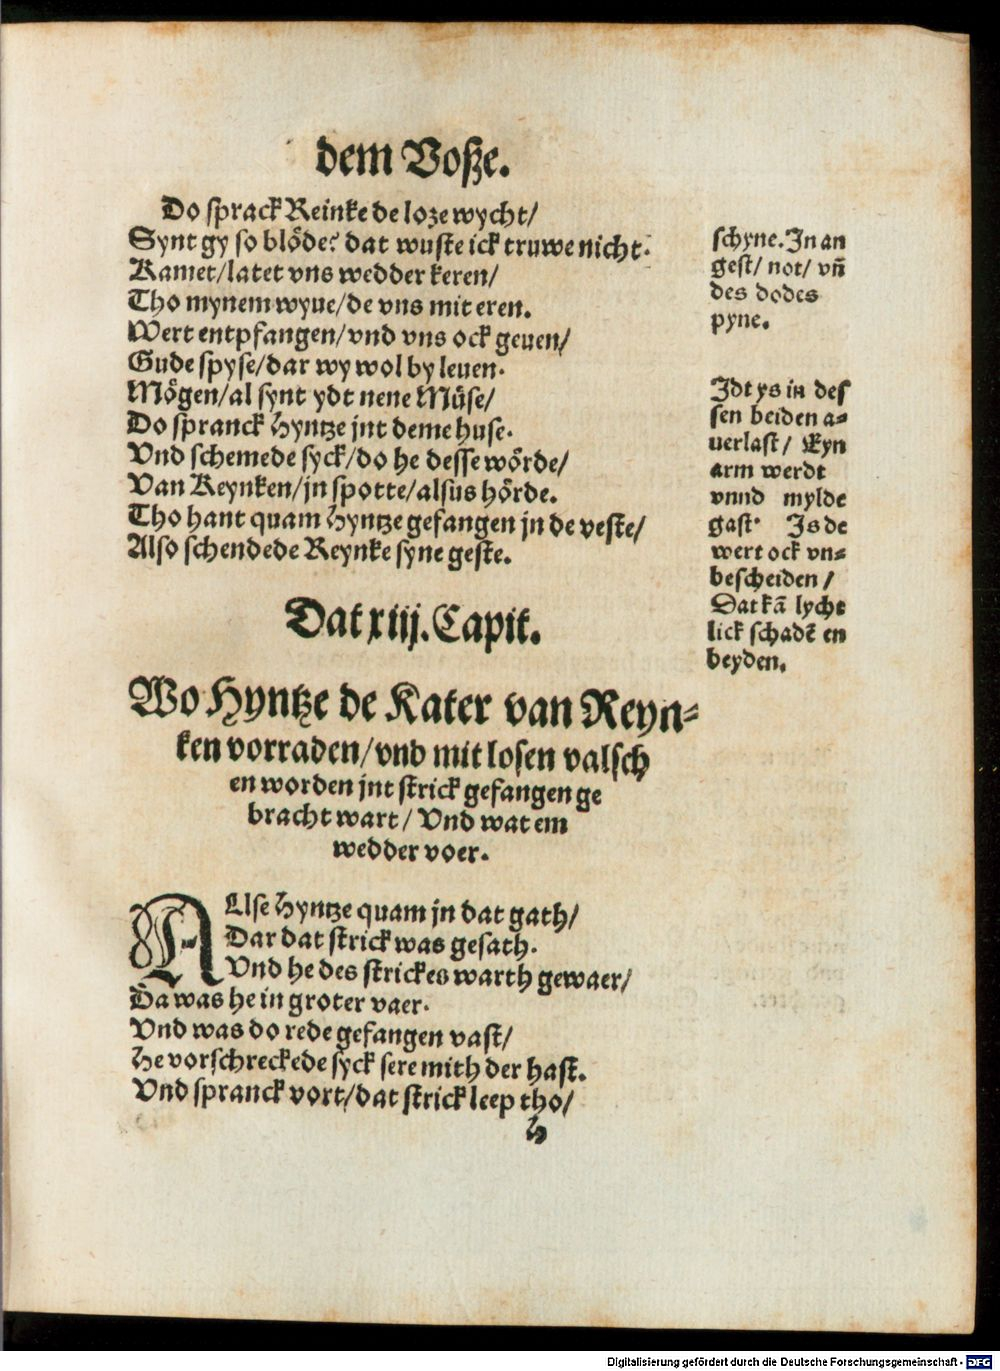 dem Voße.
Do sprack Reinke de loze wycht/
Synt gy so blöde? dat wuste ick truwe nicht.
Kamet/latet vns wedder keren/
Tho mynem wyue/de vns mit eren.
Wert entpfangen/vnd vns ock geuen/
Gude spyse/dar wy wol by leuen.
Mögen/al synt ydt nene Müse/
Do spranck Hyntze jnt deme huse.
Vnd schemede syck/do he desse wörde/
Van Reynken/jn spotte/alsus hörde.
Tho hant quam Hyntze gefangen jn de veste/
Also schendede Reynke syne geste.
schyne. In an
gest/ not/ vñ
des dodes
pyne.
Jdt ys in des
sen beiden a-
uerlast/ Eyn
arm werdt
vnnd mylde
gast. Is de
wert ock vn-
bescheiden/
Dat kã lycht
lick schadẽ en
beyden.
Dat xiij. Capit.
Wo Hyntze de Kater van Reyn-
ken vorraden/vnd mit losen valsch
en worden jnt strick gefangen ge
bracht wart/ Vnd wat em
wedder voer.
ALse Hyntze quam jn dat gath/
Dar dat strick was gesath.
Vnd he des strickes warth gewaer/
Da was he in groter vaer.
Vnd was do rede gefangen vast/
He vorschreckede syck sere mith der hast.
Vnd spranck vort/dat strick leep tho/
H
Digitalisierung gefördert durch die Deutsche Forschungsgemeinschaft - DFG